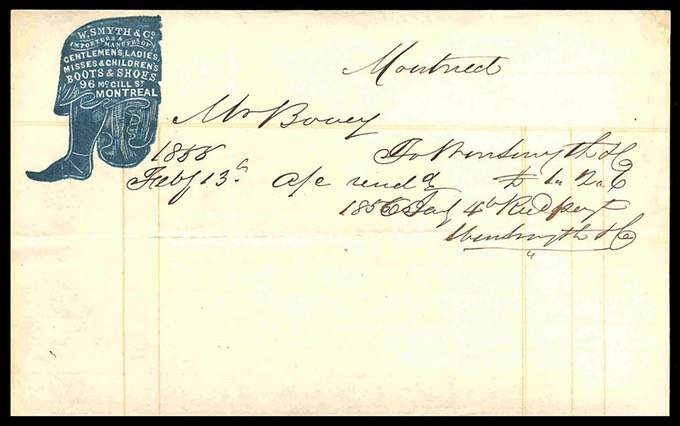 W. SMYTH & Co.
IMPORTERS &
MANUFrs OF
GENTLEMENS, LADIES,
MISSES & CHILDREN'S
BOOTS & SHOES
96 McGILL ST
MONTREAL
Montreal
Mr Bovey
1855 To Wm Smyth & Co
Feby 13th a/c rend
1856 4 Recd payt
Wm Smyth & Co